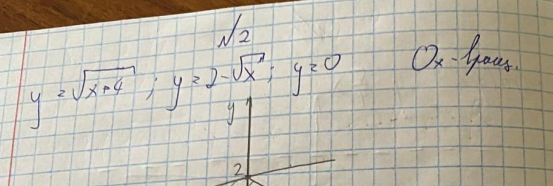 №2
y=√(x+4) ; y=2-√x ; y=0 Ox-вращ.
y
2